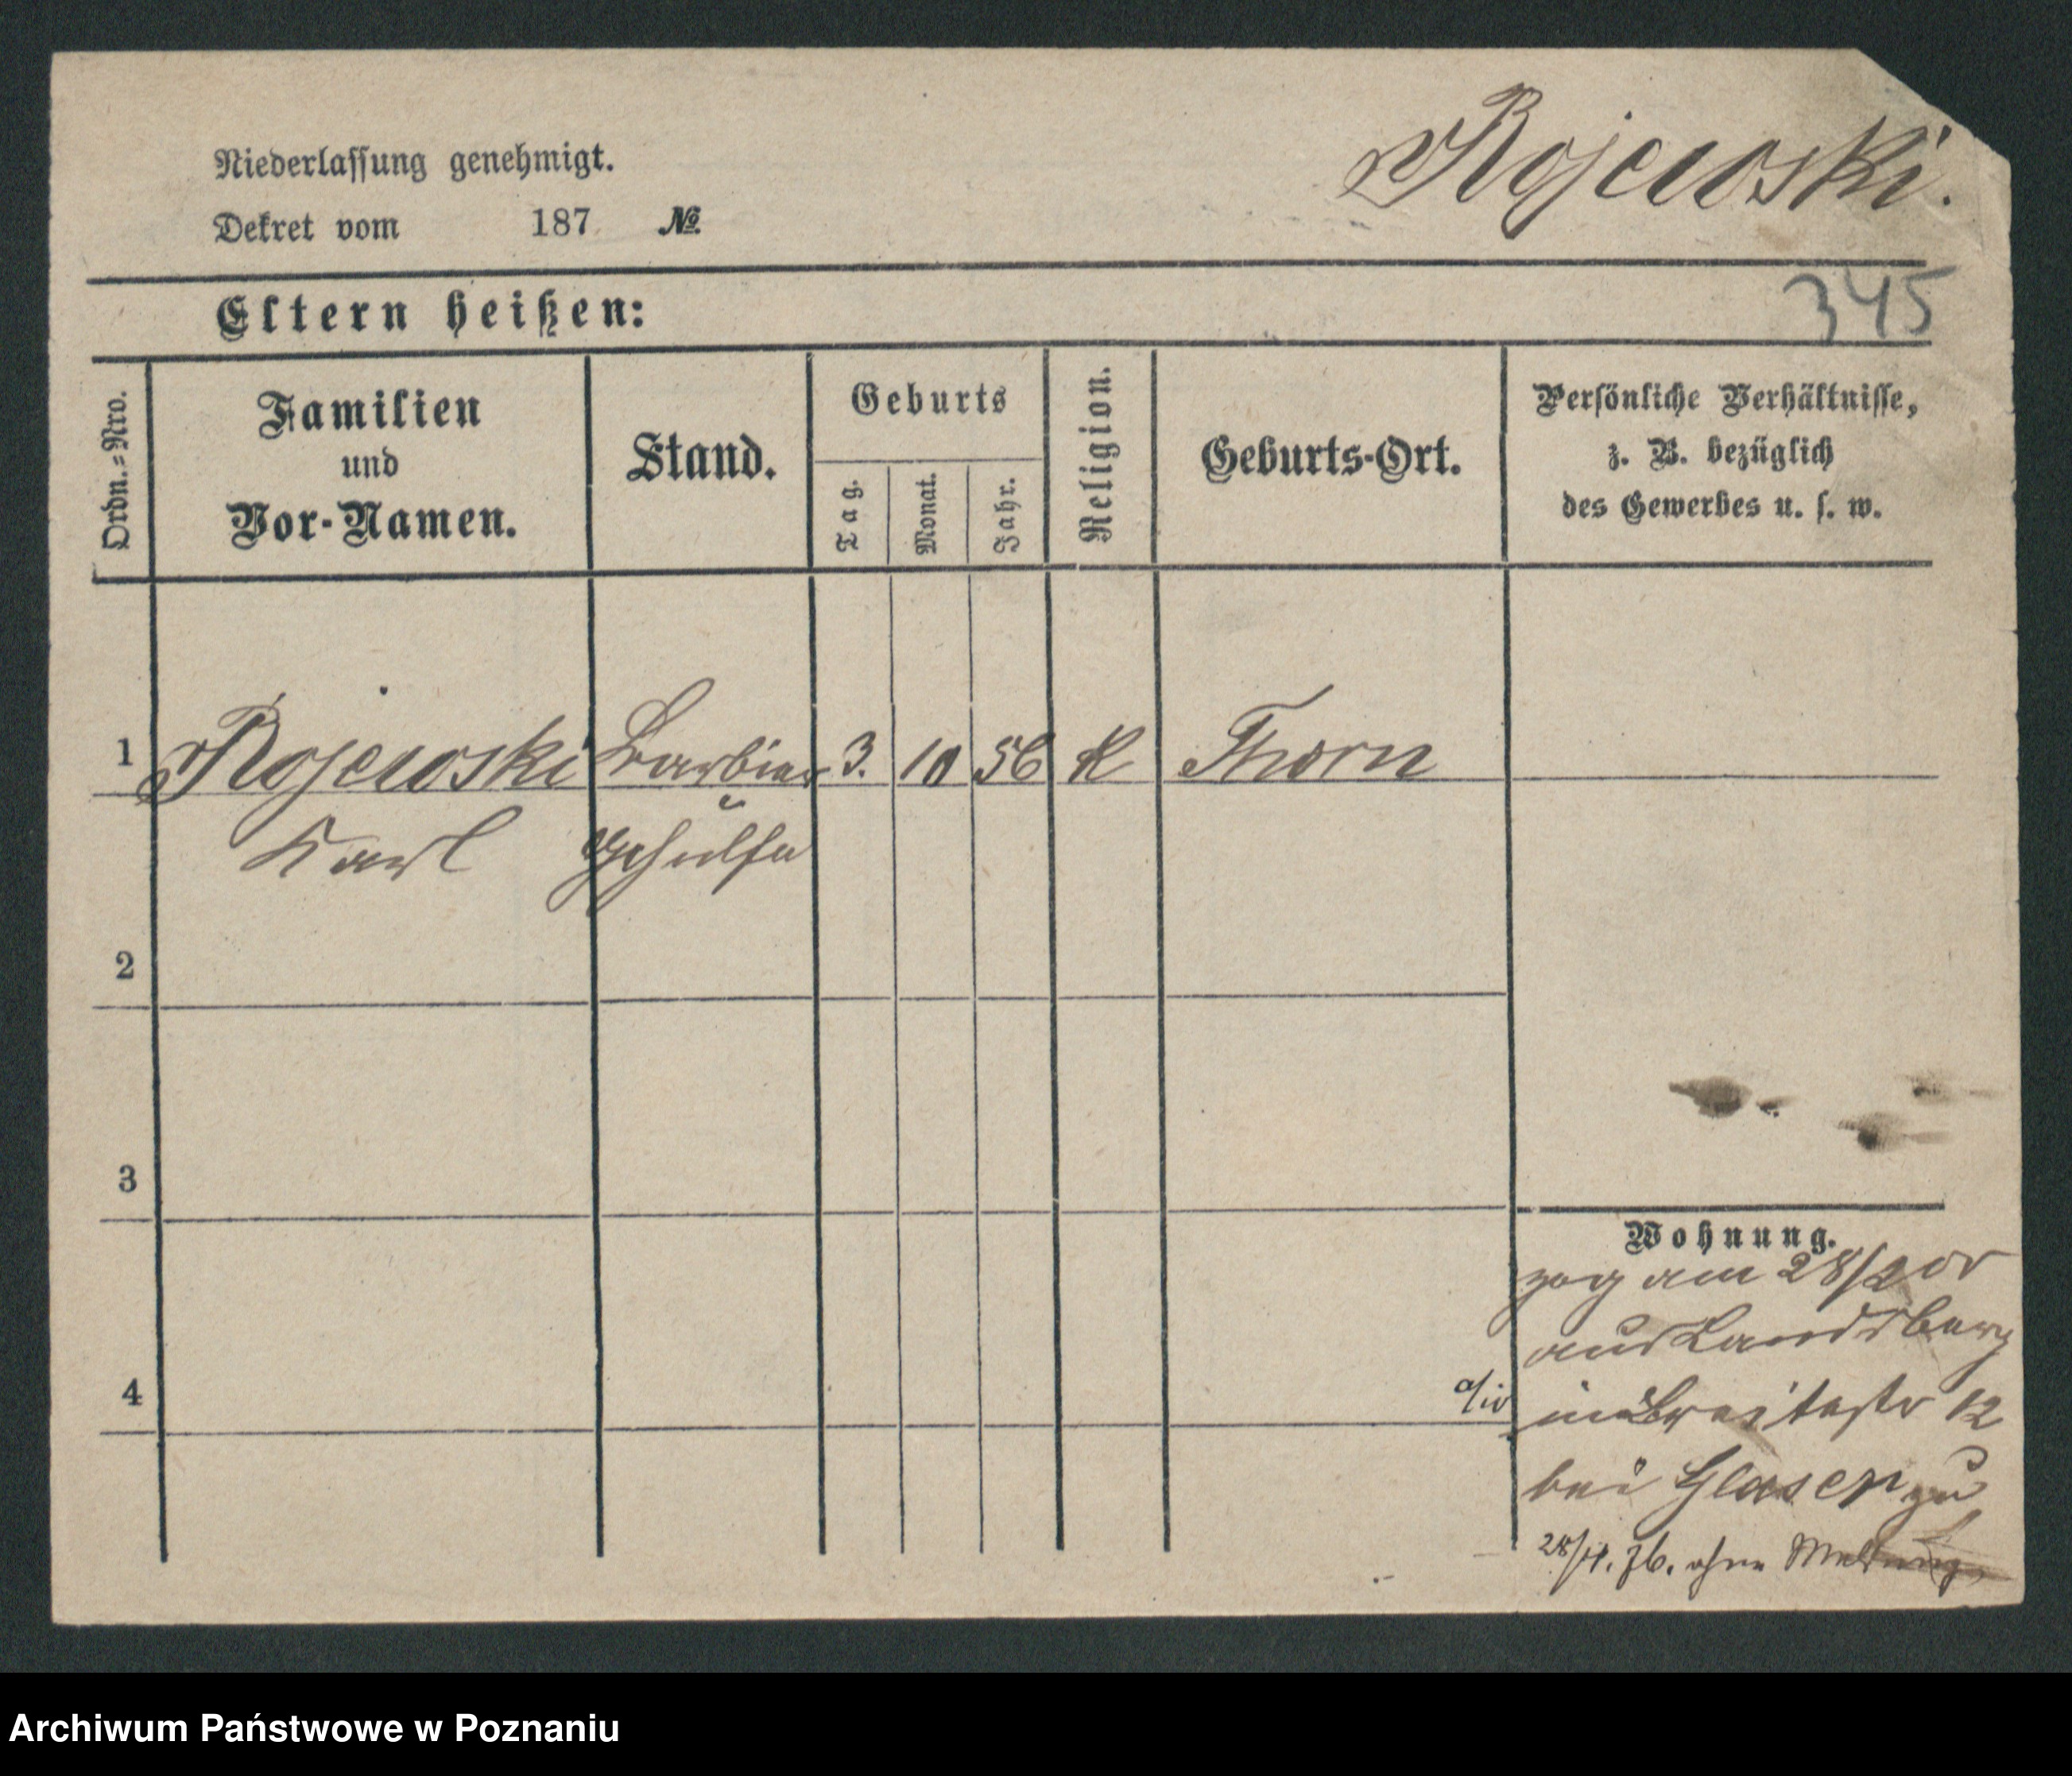 Rojewski.
Niederlassung genehmigt.
Dekret vom 187 №
345
Eltern heißen:
Ordn.=Nro.
Familien
und
Vor-Namen.
Stand.
Geburts
Tag.
Monat.
Jahr.
Religion.
Geburts-Ort.
Persönliche Verhältnisse,
z. B. bezüglich
des Gewerbes u. s. w.
1 Rojewski Barbier 3. 10 56 K Thorn
Karl Gehülfe
2
3
4
Wohnung.
zog am 28/2
aus Landsberg
in Breitestr 12
bei Glaser zu
ohne Meldung
Archiwum Państwowe w Poznaniu